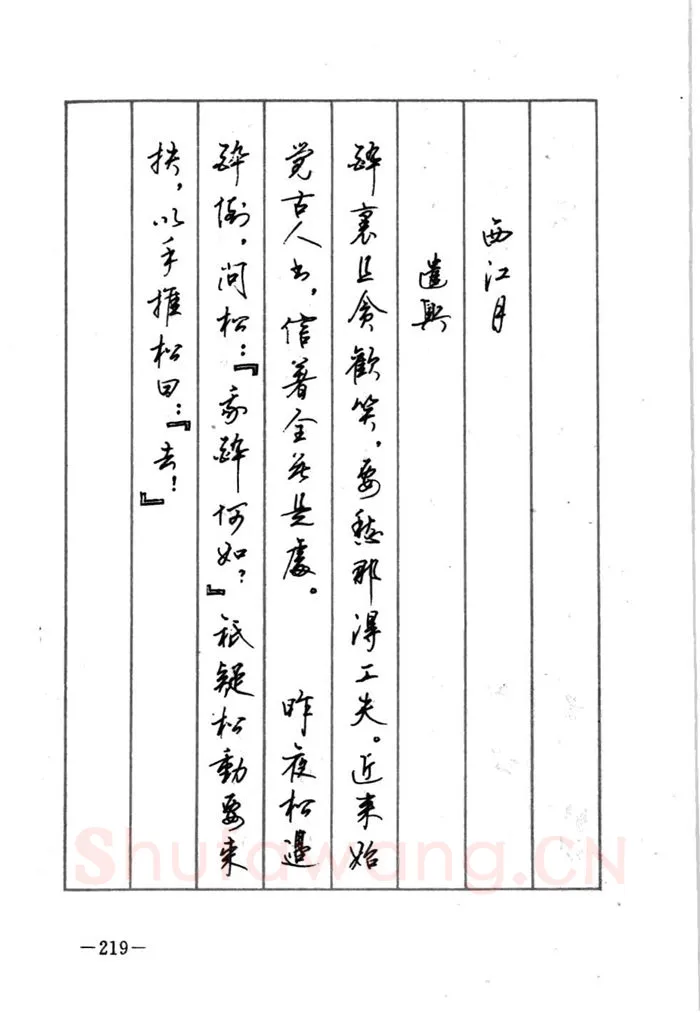 西江月
遣興
醉裏且貪歡笑，要愁那得工夫。近来始
覺古人书，信著全無是處。 昨夜松邊
醉倒，问松：『我醉何如？』祇疑松動要来
扶，以手推松曰：『去！』
Shufawang.CN
—219—